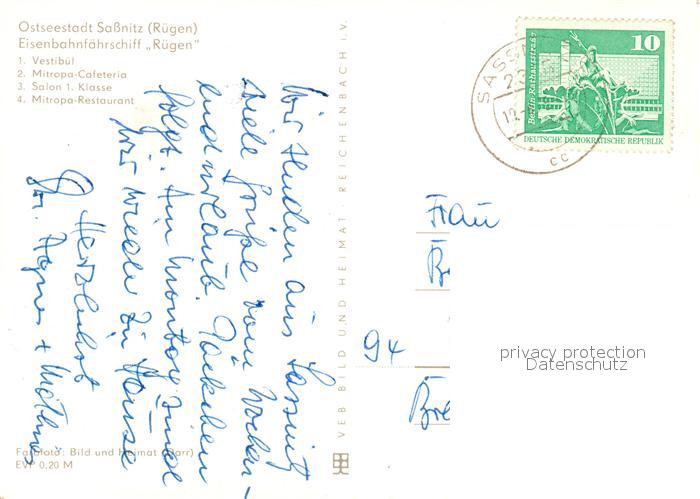 Ostseestadt Saßnitz (Rügen)
Eisenbahnfährschiff „Rügen"
1. Vestibül
2. Mitropa-Cafeteria
3. Salon 1. Klasse
4. Mitropa-Restaurant
Wir senden aus Sassnitz
viele Grüße vom Wochen-
endurlaub. Päckchen
folgt. Am Montag sind
wir wieder zu Hause
Herzlichst
Agnes +
Farbfoto: Bild und Heimat (Darr)
EVP 0,20 M
VEB BILD UND HEIMAT · REICHENBACH i. V.
SASS
10
Berlin Rathausstraße
DEUTSCHE DEMOKRATISCHE REPUBLIK
cc
Frau
94
privacy protection
Datenschutz